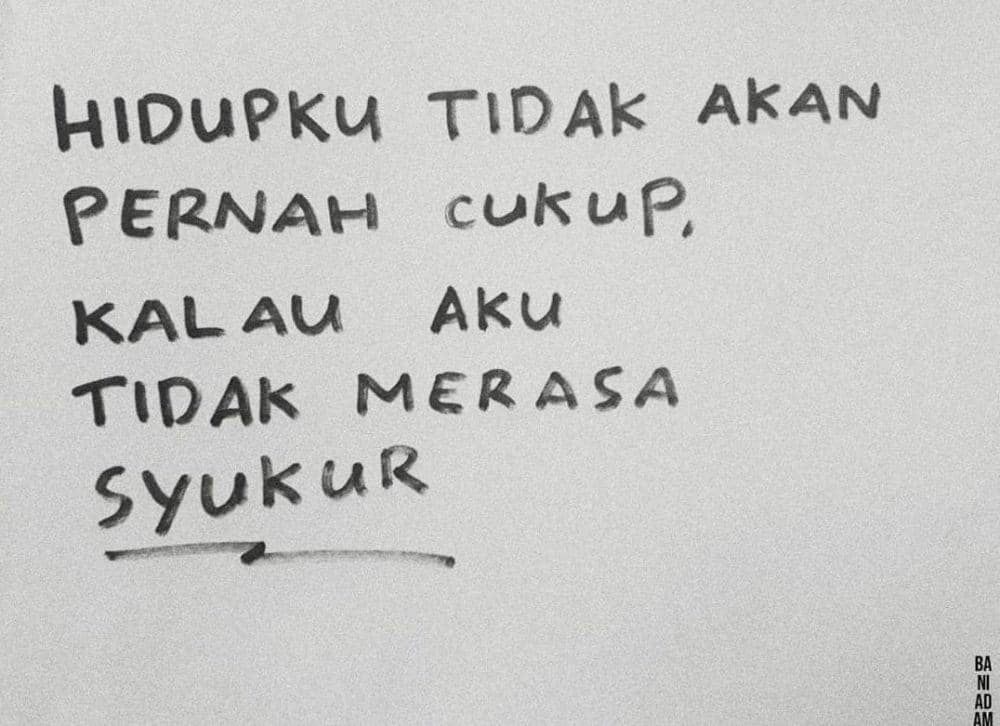 HIDUPKU TIDAK AKAN
PERNAH CUKUP,
KALAU AKU
TIDAK MERASA
SYUKUR
BA
NI
AD
AM